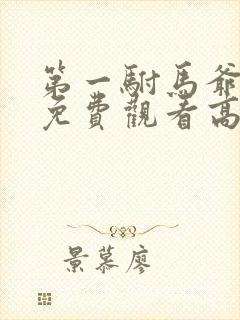 第一駙馬爺
免費觀看高
景慕廖